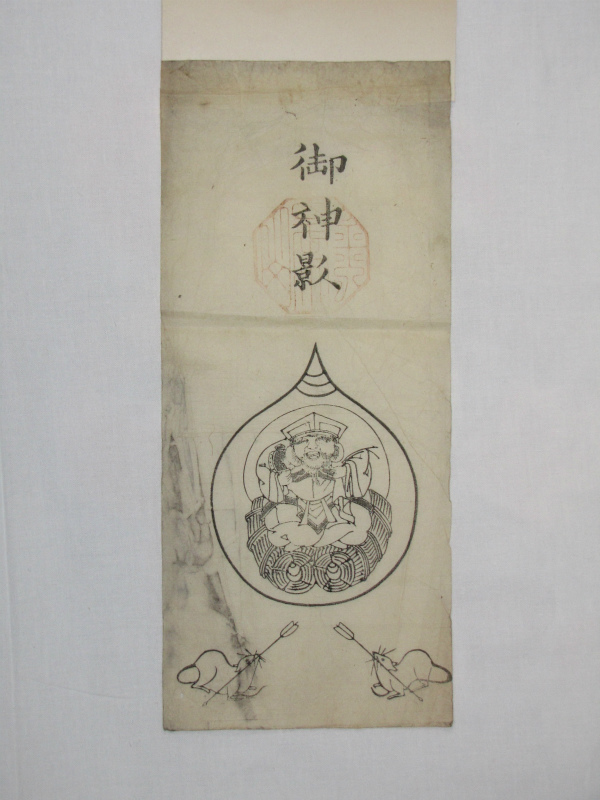 御神影